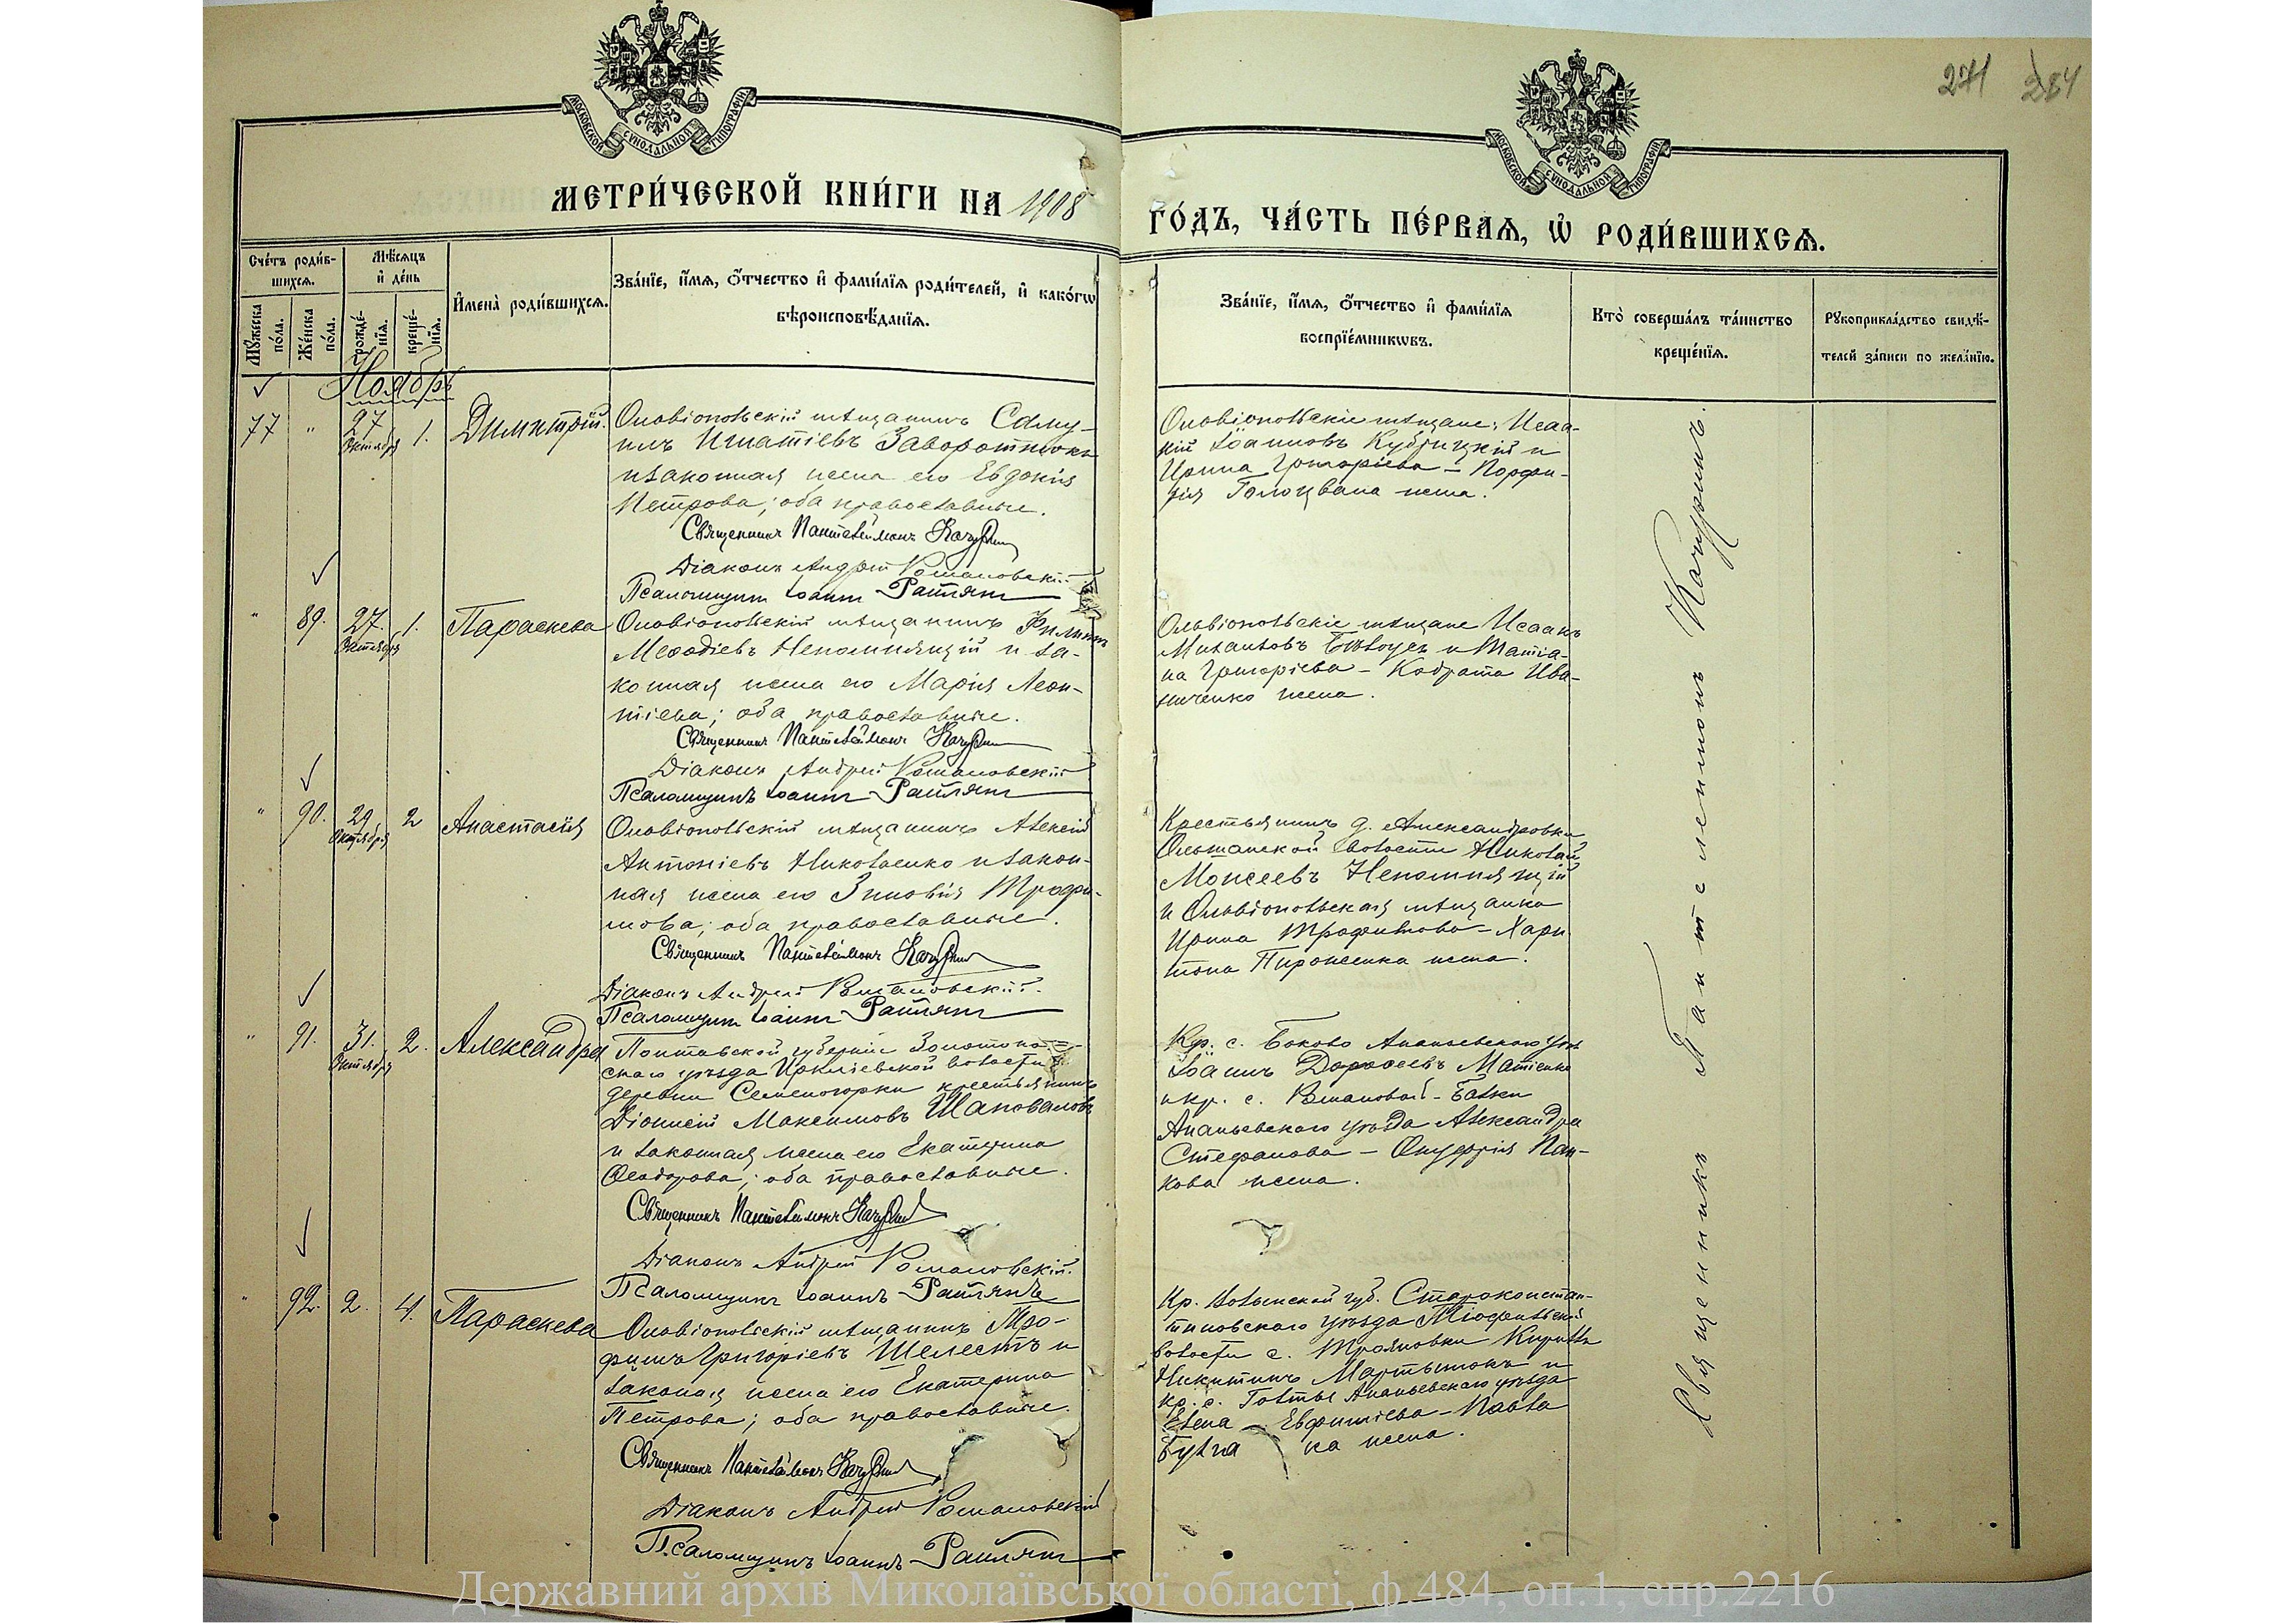 271 284
МОСКОВСКОЙ СУНОДАЛЬНОЙ ТИПОГРАФІИ
МОСКОВСКОЙ СУНОДАЛЬНОЙ ТИПОГРАФІИ
МЕТРИ́ЧЕСКОЙ КНИ́ГИ НА 1908
ГО́ДЪ, ЧА́СТЬ ПЕ́РВАѦ, Ѡ҆ РОДИ́ВШИХСѦ.
Сче́тъ роди́в-
шихсѧ.
Мѣ́сѧцъ
и҆ де́нь
Мꙋ́жеска по́ла.
Же́нска по́ла.
рожде́-
нїѧ.
креще́-
нїѧ.
И҆мена̀ роди́вшихсѧ.
Зва́нїе, и҆́мѧ, ѻ҆́тчество и҆ фами́лїѧ роди́телей, и҆ како́гѡ
вѣроисповѣ́данїѧ.
Зва́нїе, и҆́мѧ, ѻ҆́тчество и҆ фами́лїѧ
воспрїе́мникѡвъ.
Кто̀ соверша́лъ та́инство
креще́нїѧ.
Рꙋкоприкла́дство свидѣ́-
телей за́писи по жела́нїю.
Ноябрь
77 " 27 Октября 1. Димитрій.
Ольвіопольскій мѣщанинъ Саму-
илъ Игнатіевъ Заворотнюкъ
и законная жена его Евдокія
Петрова; оба православные.
Священникъ Пантелеймонъ Качурин
Діаконъ Андрей Романовскій
Псаломщикъ Іоаннъ Райлянъ
Ольвіопольскіе мѣщане: Исаа-
кій Іоанновъ Кубрицкій и
Ирина Григоріева - Порфи-
рія Голоцвана жена.
" 89. 27. Октября 1. Параскева
Ольвіопольскій мѣщанинъ Филиппъ
Меѳодіевъ Непомнящій и за-
конная жена его Марія Леон-
тіева; оба православные.
Священникъ Пантелеймонъ Качурин
Діаконъ Андрей Романовскій
Псаломщикъ Іоаннъ Райлянъ
Ольвіопольскіе мѣщане Исаакъ
Михаиловъ и Татіа-
на Григорієва - Кодрата Ива-
ниченко жена.
" 90. 29 Октября 2 Анастасія
Ольвіопольскій мѣщанинъ Алексій
Антоніевъ Николаенко и закон-
ная жена его Зиновія Трофи-
мова; оба православные.
Священникъ Пантелеймонъ Качурин
Діаконъ Андрей Романовскій.
Псаломщикъ Іоаннъ Райлянъ
Крестьянинъ д. Александровки
Ольшанской волости Николай
Моисеевъ Непомнящій
и Ольвіопольская мѣщанка
Ирина Трофимова - Хари-
тона Пироженка жена.
" 91. 31. Октября 2. Александра
Полтавской губерніи Золотоно-
скаго уѣзда Ирклѣевской волости
деревни Семеногорки крестьянинъ
Діонисій Максимовъ Шаповаловъ
и законная жена его Екатерина
Ѳеодорова; оба православные.
Священникъ Пантелеймонъ Качурин
Діаконъ Андрей Романовскій.
Псаломщикъ Іоаннъ Райлянъ
Кр. с. Боково Ананьевскаго уѣз.
Іоаннъ Дороѳеевъ Матіенко
и кр. с. Романовой-Балки
Ананьевскаго уѣзда Александра
Стефанова - Онуфрія Пан-
кова жена.
" 92. 2. 4. Параскева
Ольвіопольскій мѣщанинъ Тро-
фимъ Григоріевъ Шелестъ и
законная жена его Екатерина
Петрова; оба православные.
Священникъ Пантелеймонъ Качурин
Діаконъ Андрей Романовскій
Псаломщикъ Іоаннъ Райлянъ
Кр. Волынской губ. Староконстан-
тиновскаго уѣзда
волости с. Трояновки Кириллъ
Никитинъ Мартынюкъ и
кр. с. Голты Ананьевскаго уѣзда
Елена Евфиміева - Павла
жена.
Священникъ Пантелеимонъ Качуринъ.
Державний архів Миколаївської області, ф.484, оп.1, спр.2216